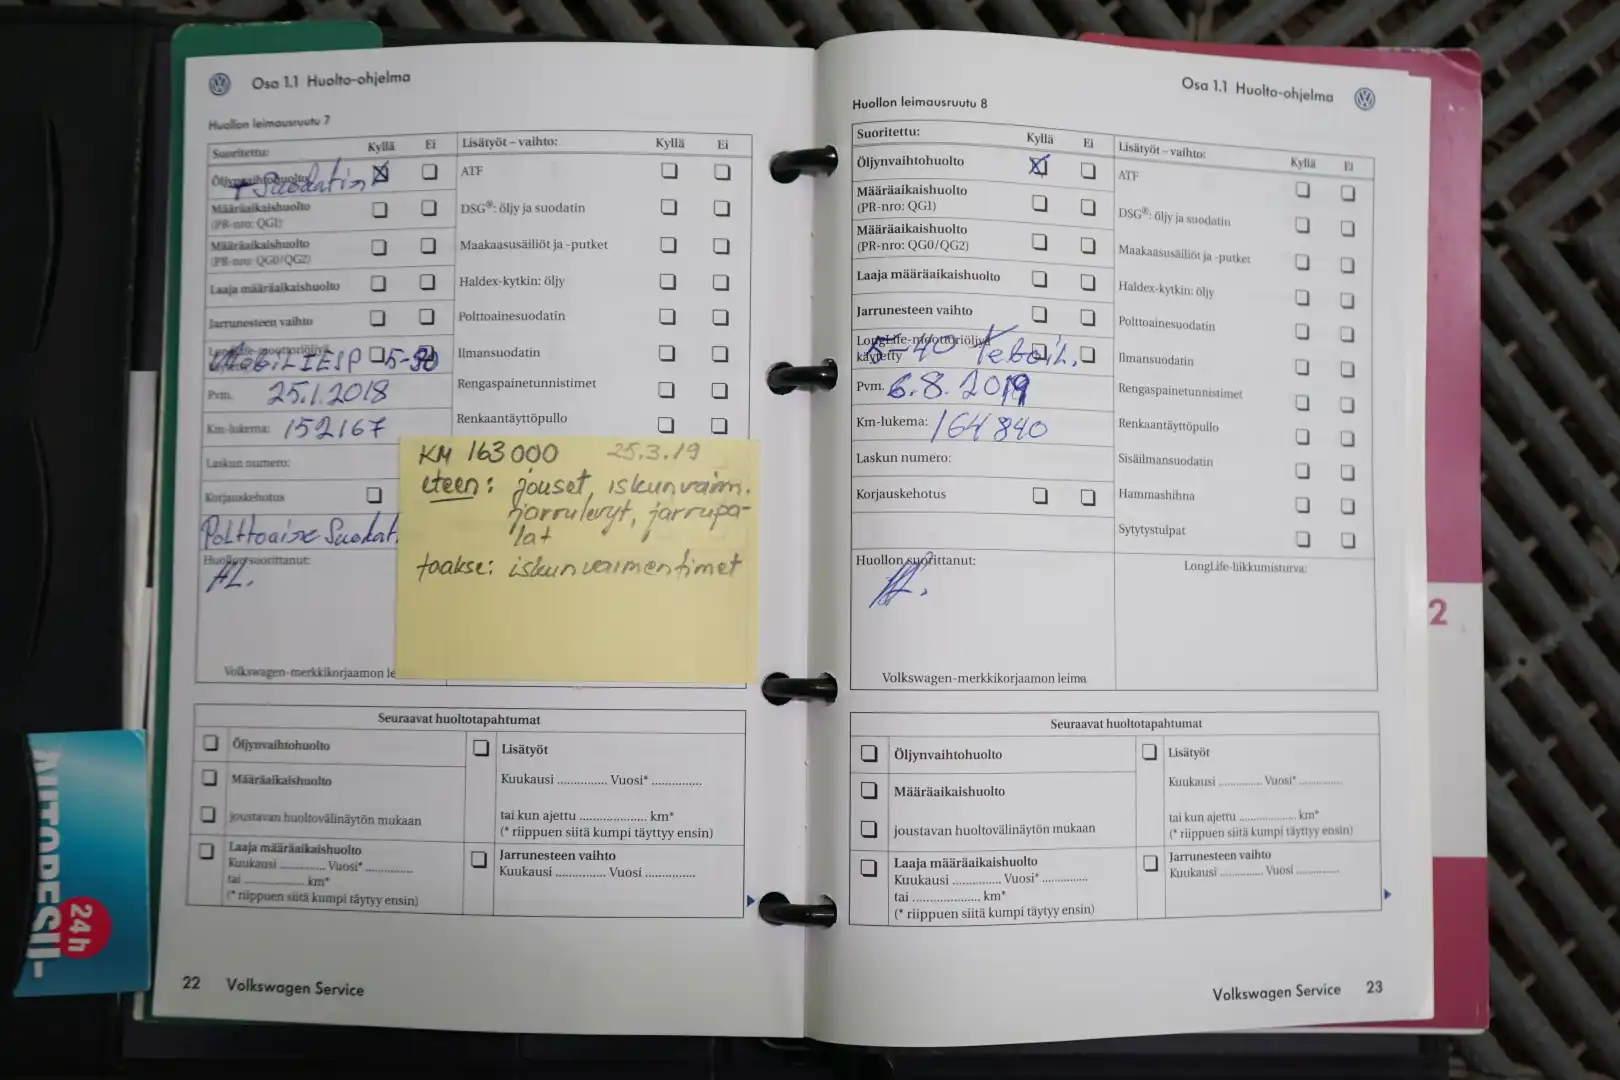 Osa 1.1 Huolto-ohjelma
Huollon leimausruutu 7
Suoritettu: Kyllä Ei
Öljynvaihtohuolto
+ Suodatin
Määräaikaishuolto
(PR-nro: QG1)
Määräaikaishuolto
(PR-nro: QG0/QG2)
Laaja määräaikaishuolto
Jarrunesteen vaihto
LongLife-moottoriöljyä
MobiL1ESP 5-30
Pvm. 25.1.2018
Km-lukema: 152167
Laskun numero:
Korjauskehotus
Polttoaine Suodat
Huollon suorittanut:
AL.
Volkswagen-merkkikorjaamon le
Lisätyöt – vaihto: Kyllä Ei
ATF
DSG®: öljy ja suodatin
Maakaasusäiliöt ja -putket
Haldex-kytkin: öljy
Polttoainesuodatin
Ilmansuodatin
Rengaspainetunnistimet
Renkaantäyttöpullo
KM 163000 25.3.19
eteen: jouset, iskunvaim.
jarrulevyt, jarrupa-
lat
taakse: iskunvaimentimet
Seuraavat huoltotapahtumat
Öljynvaihtohuolto
Määräaikaishuolto
joustavan huoltovälinäytön mukaan
Laaja määräaikaishuolto
Kuukausi .............. Vuosi* ..............
tai .................... km*
(* riippuen siitä kumpi täytyy ensin)
Lisätyöt
Kuukausi .............. Vuosi* ..............
tai kun ajettu .................... km*
(* riippuen siitä kumpi täyttyy ensin)
Jarrunesteen vaihto
Kuukausi .............. Vuosi ..............
22 Volkswagen Service
Osa 1.1 Huolto-ohjelma
Huollon leimausruutu 8
Suoritettu: Kyllä Ei
Öljynvaihtohuolto
Määräaikaishuolto
(PR-nro: QG1)
Määräaikaishuolto
(PR-nro: QG0/QG2)
Laaja määräaikaishuolto
Jarrunesteen vaihto
LongLife-moottoriöljyä
käytetty
5-40 Teboil.
Pvm. 6.8.2019
Km-lukema: 164840
Laskun numero:
Korjauskehotus
Huollon suorittanut:
Volkswagen-merkkikorjaamon leima
Lisätyöt – vaihto: Kyllä Ei
ATF
DSG®: öljy ja suodatin
Maakaasusäiliöt ja -putket
Haldex-kytkin: öljy
Polttoainesuodatin
Ilmansuodatin
Rengaspainetunnistimet
Renkaantäyttöpullo
Sisäilmansuodatin
Hammashihna
Sytytystulpat
LongLife-liikkumisturva:
Seuraavat huoltotapahtumat
Öljynvaihtohuolto
Määräaikaishuolto
joustavan huoltovälinäytön mukaan
Laaja määräaikaishuolto
Kuukausi .............. Vuosi* ..............
tai .................... km*
(* riippuen siitä kumpi täytyy ensin)
Lisätyöt
Kuukausi .............. Vuosi* ..............
tai kun ajettu .................... km*
(* riippuen siitä kumpi täyttyy ensin)
Jarrunesteen vaihto
Kuukausi .............. Vuosi ..............
Volkswagen Service 23
2
AUTOPESU-
24h